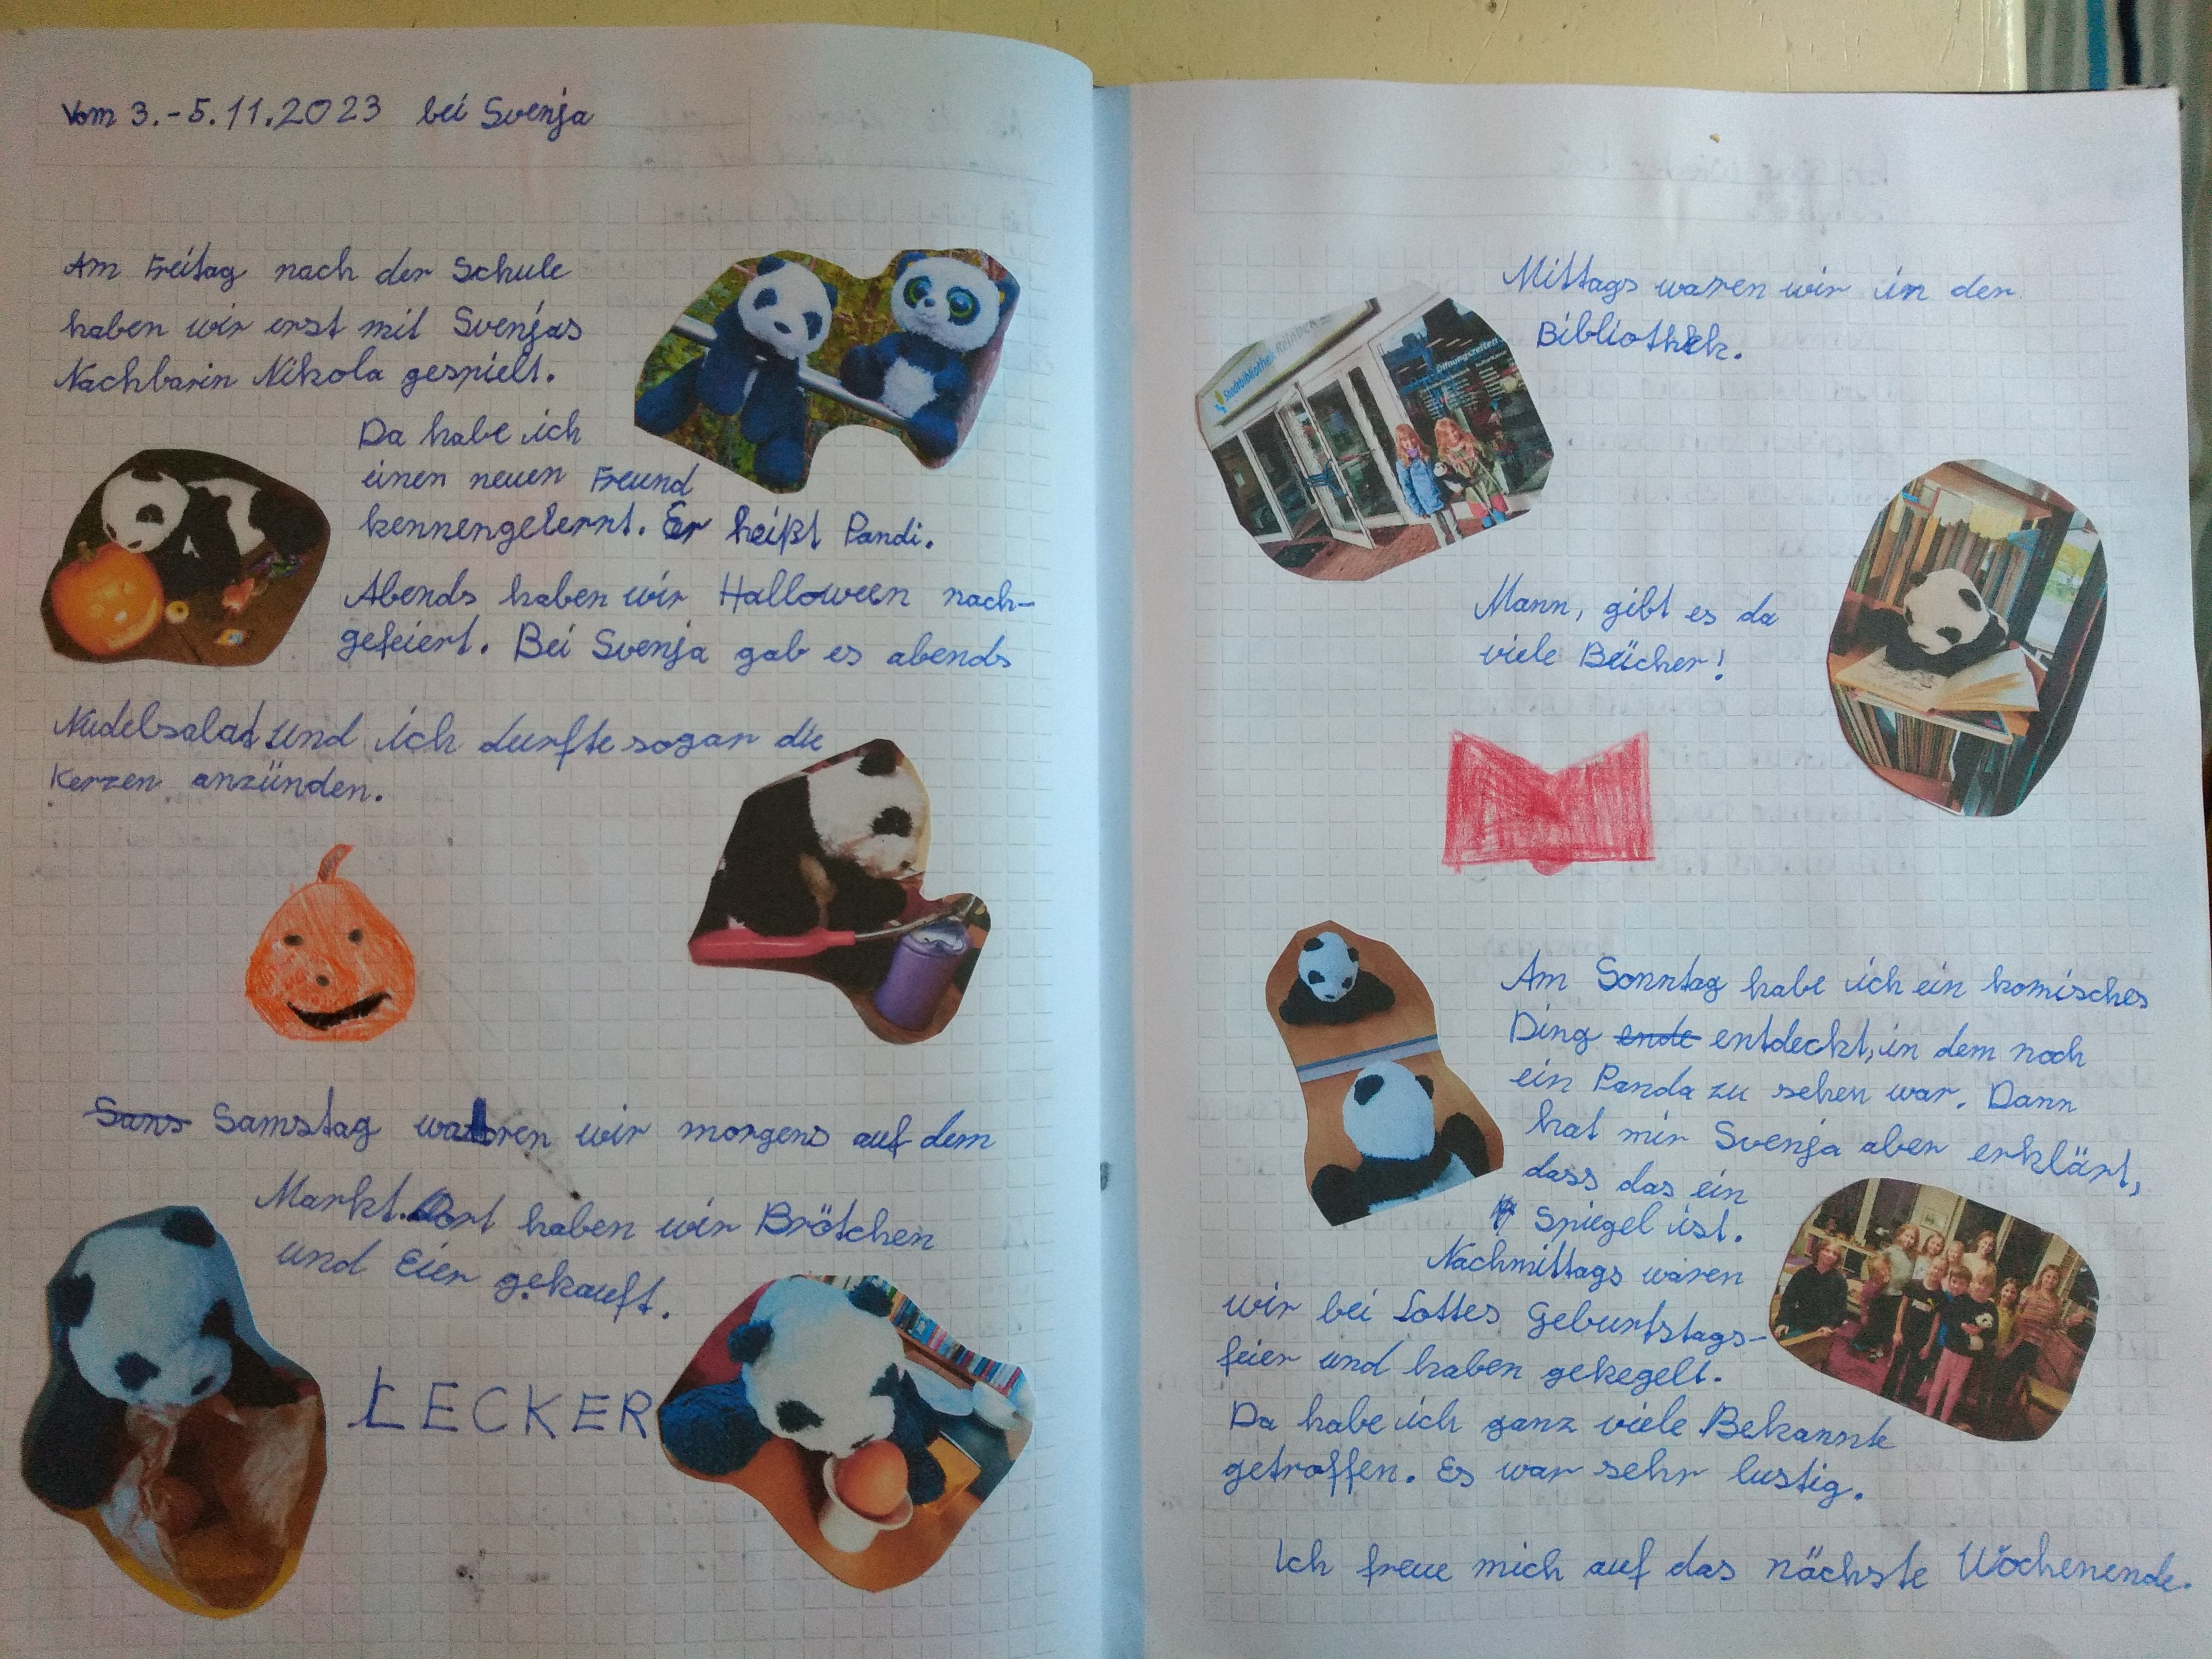 Vom 3.-5.11.2023 bei Svenja
Am Freitag nach der Schule
haben wir erst mit Svenjas
Nachbarin Nikola gespielt.
Da habe ich
einen neuen Freund
kennengelernt. Er heißt Pandi.
Abends haben wir Halloween nach-
gefeiert. Bei Svenja gab es abends
Nudelsalat und ich durfte sogar die
Kerzen anzünden.
Sans Samstag waren wir morgens auf dem
Markt. Dort haben wir Brötchen
und Eier gekauft.
LECKER
Mittags waren wir in der
Bibliothek.
Stadtbibliothek Reinbek
Öffnungszeiten
Mann, gibt es da
viele Bücher!
Am Sonntag habe ich ein komisches
Ding ende entdeckt, in dem noch
ein Panda zu sehen war. Dann
hat mir Svenja aber erklärt,
dass das ein
Spiegel ist.
Nachmittags waren
wir bei Lottes Geburtstags-
feier und haben gekegelt.
Da habe ich ganz viele Bekannte
getroffen. Es war sehr lustig.
Ich freue mich auf das nächste Wochenende.